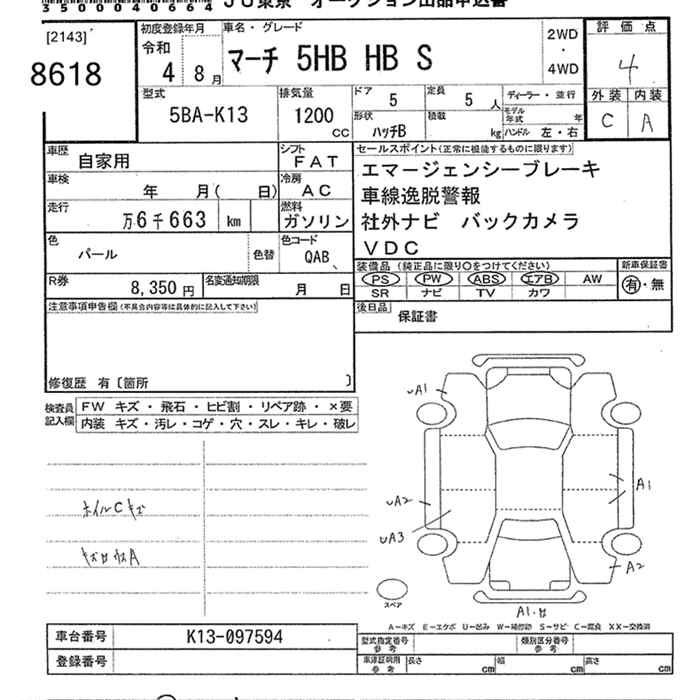 350000040664
JU東京 オークション出品申込書
[2143]
8618
初度登録年月
令和
4 8月
車名・グレード
マーチ 5HB HB S
2WD
・
4WD
評価点
4
外装 内装
C A
型式
5BA-K13
排気量
1200
CC
ドア 5
定員 5 人
形状 ハッチB
積載 kg
ディーラー・並行
モデル年式 年
ハンドル 左・右
車歴
自家用
シフト
FAT
車検
年 月( 日)
冷房
AC
走行
万6千663 km
燃料
ガソリン
色
パール
色替
色コード
QAB、
R券
8,350円
名変通知期限
月 日
セールスポイント(正常に機能するものに限ります)
エマージェンシーブレーキ
車線逸脱警報
社外ナビ バックカメラ
VDC
装備品 (純正品に限り○をつけてください)
PS PW ABS エアB AW
SR ナビ TV カワ
新車保証書
有・無
後日品
保証書
注意事項申告欄(不具合内容等は具体的に記入して下さい)
修復歴 有〔箇所 〕
検査員記入欄
FW キズ・飛石・ヒビ割・リペア跡・×要
内装 キズ・汚レ・コゲ・穴・スレ・キレ・破レ
ホイルCキズ
UA1
UA2
UA3
A1
A2
スペア
A1.
A-キズ E-エクボ U-凹み W-補修跡 S-サビ C-腐食 XX-交換済
車台番号
K13-097594
登録番号
型式指定番号
参考
類別区分番号
参考
車庫証明用
参考
長さ cm
幅 cm
高さ cm